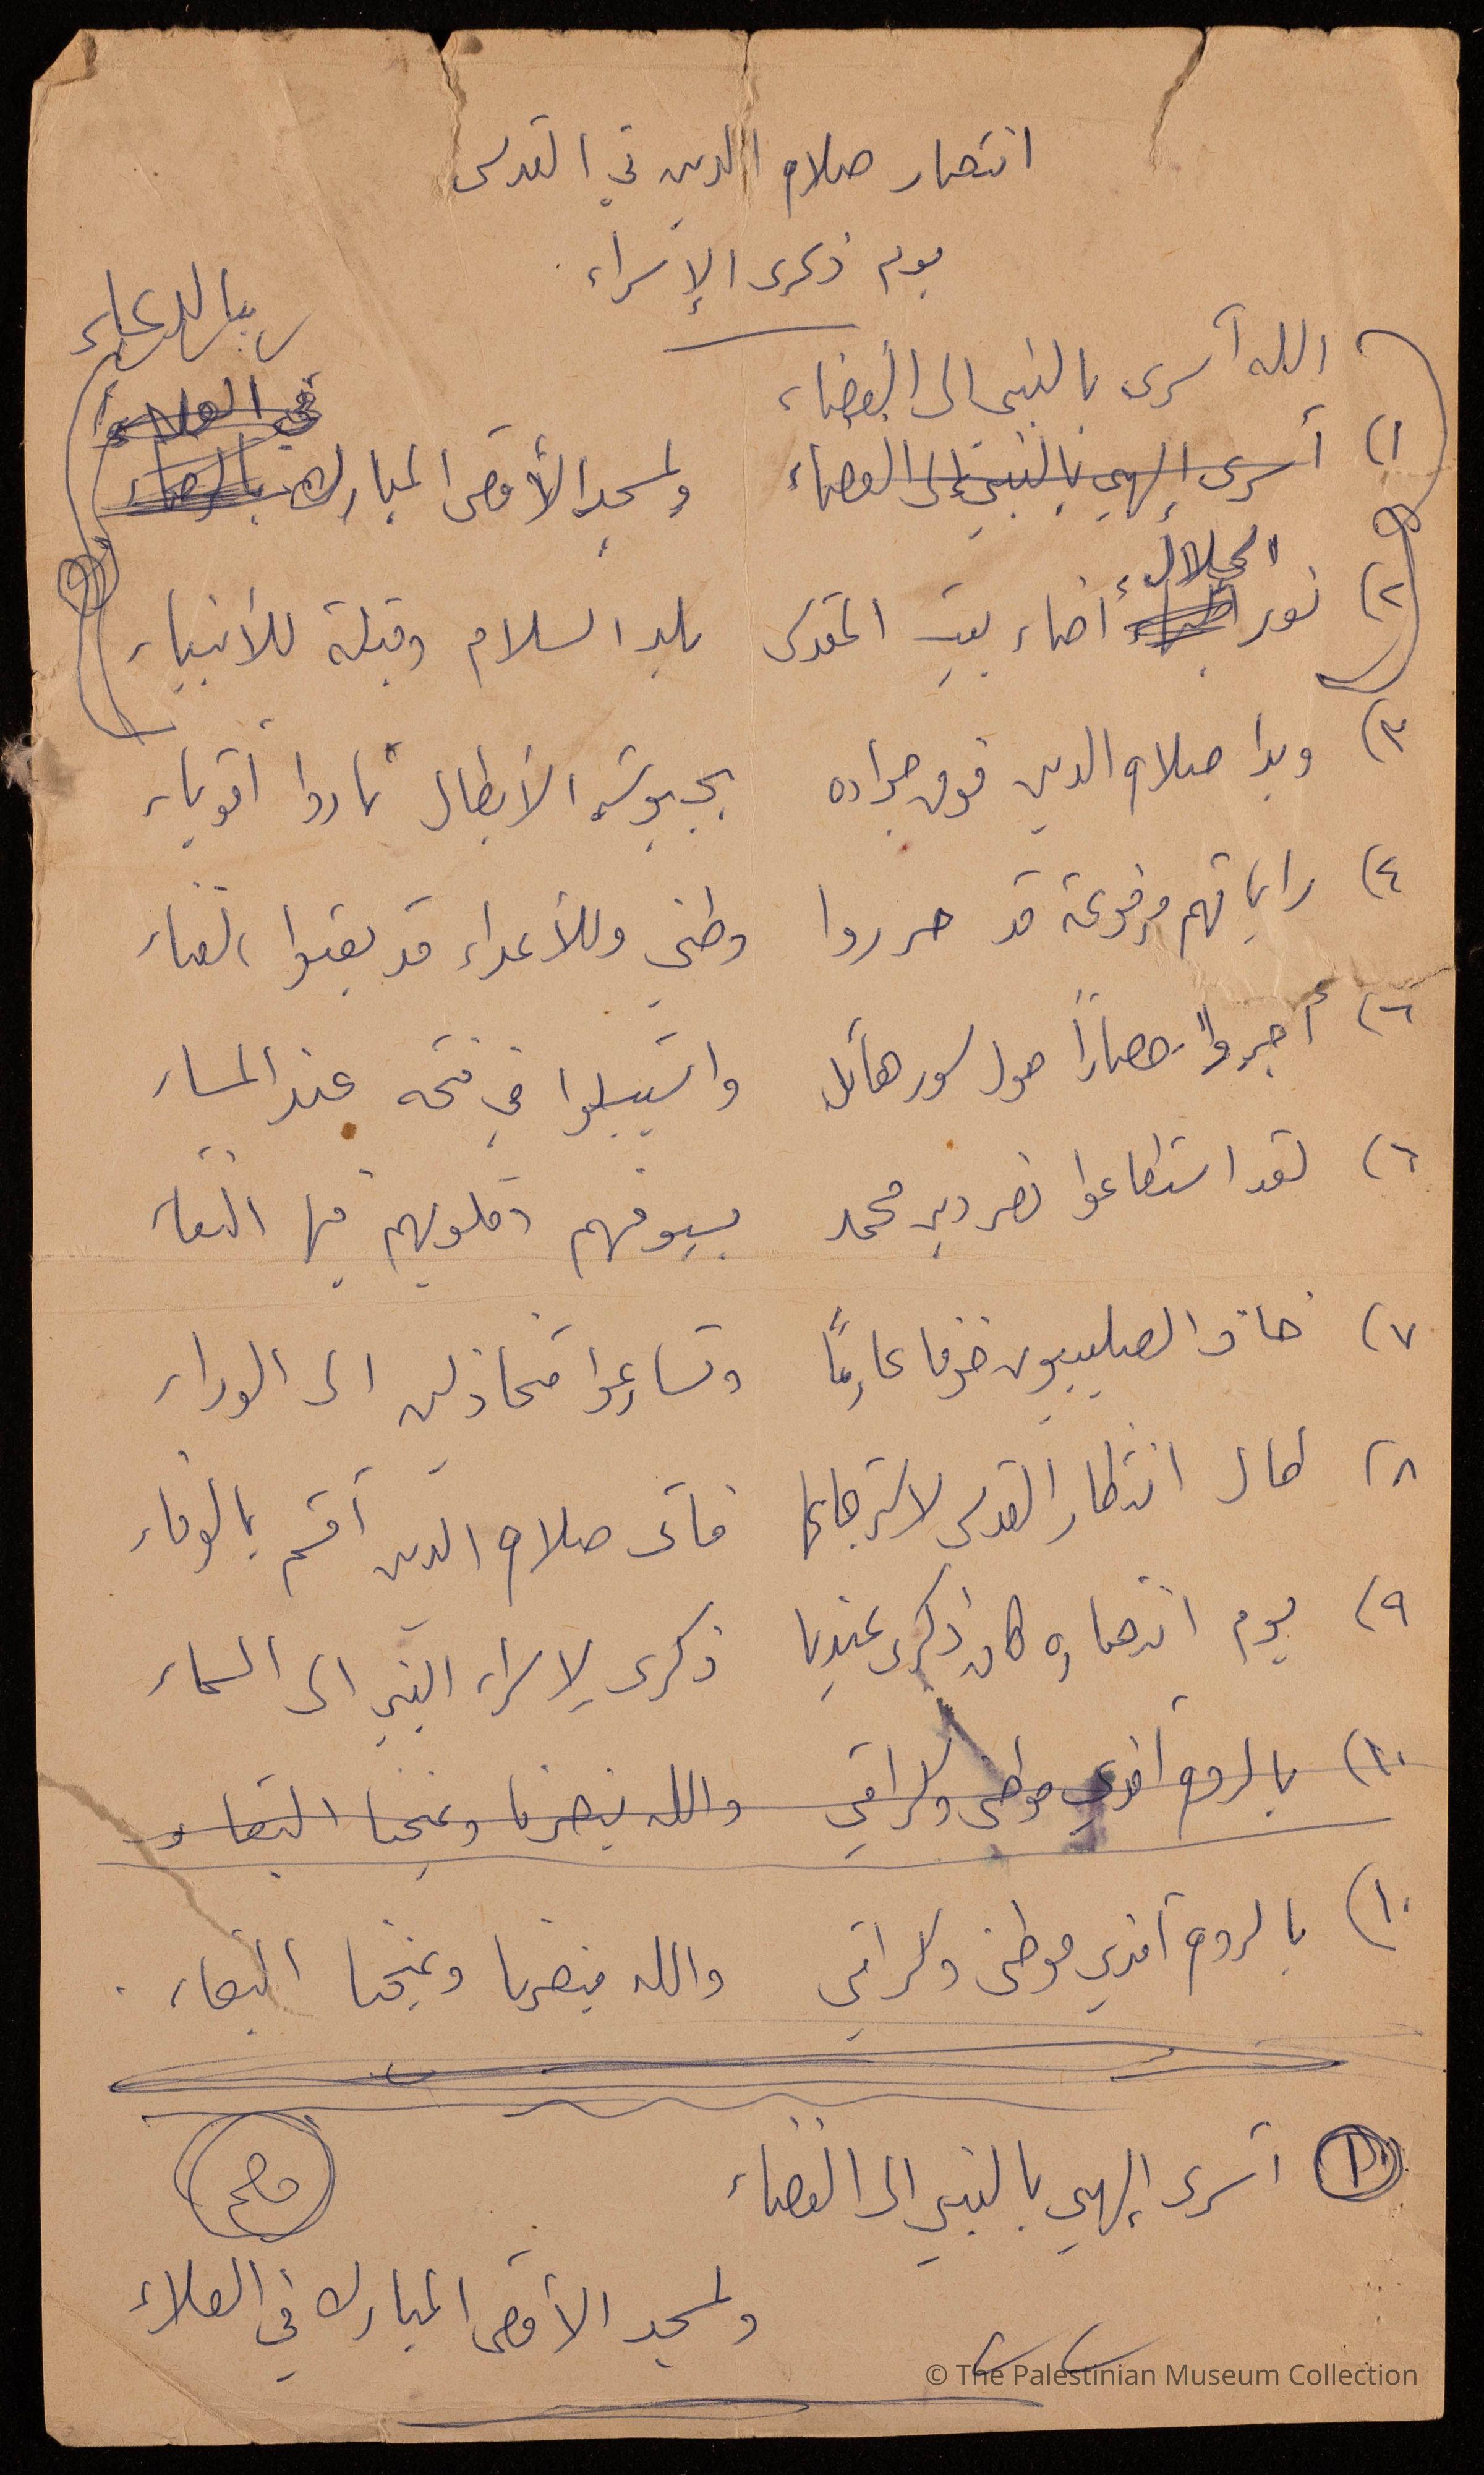 انتصار صلاح الدين في القدس
يوم ذكرى الإسراء
الله أسرى بالنبي الى الفضاء
بالدعاء
في العلاء
١) أسرى إلهي بالنبي الى الفضاء ولمسجد الأقصى المبارك
الجلال
٢) نور أضاء بيت المقدس بلد السلام وقبلة للأنبياء
٣) وبدا صلاح الدين فوق جواده بجيوشه الأبطال ثاروا أقوياء
٤) راياتهم مرفوعة قد حرروا وطني وللأعداء قد
٦) أجروا حصاراً حول سور هائل في فتحه عند المساء
٦) لقد استطاعوا نصر دين محمد بسيوفهم وقلوبهم فيها النقاء
٧) خاف الصليبيون خوفا عارماً وتسارعوا متخاذلين الى الوراء
٨) طال انتظار القدس لاسترجاعها فأتى صلاح الدين أقسم بالوفاء
٩) يوم انتصاره كان ذكرى عندنا ذكرى لإسراء النبي الى السماء
١٠) بالروح افدي موطني وكرامتي والله ينصرنا ويمنحنا البقاء
١٠) بالروح أفدي موطني وكرامتي والله ينصرنا ويمنحنا البقاء .
١ أسرى إلهي بالنبي الى الفضاء
ولمسجد الأقصى المبارك في العلاء
© The Palestinian Museum Collection